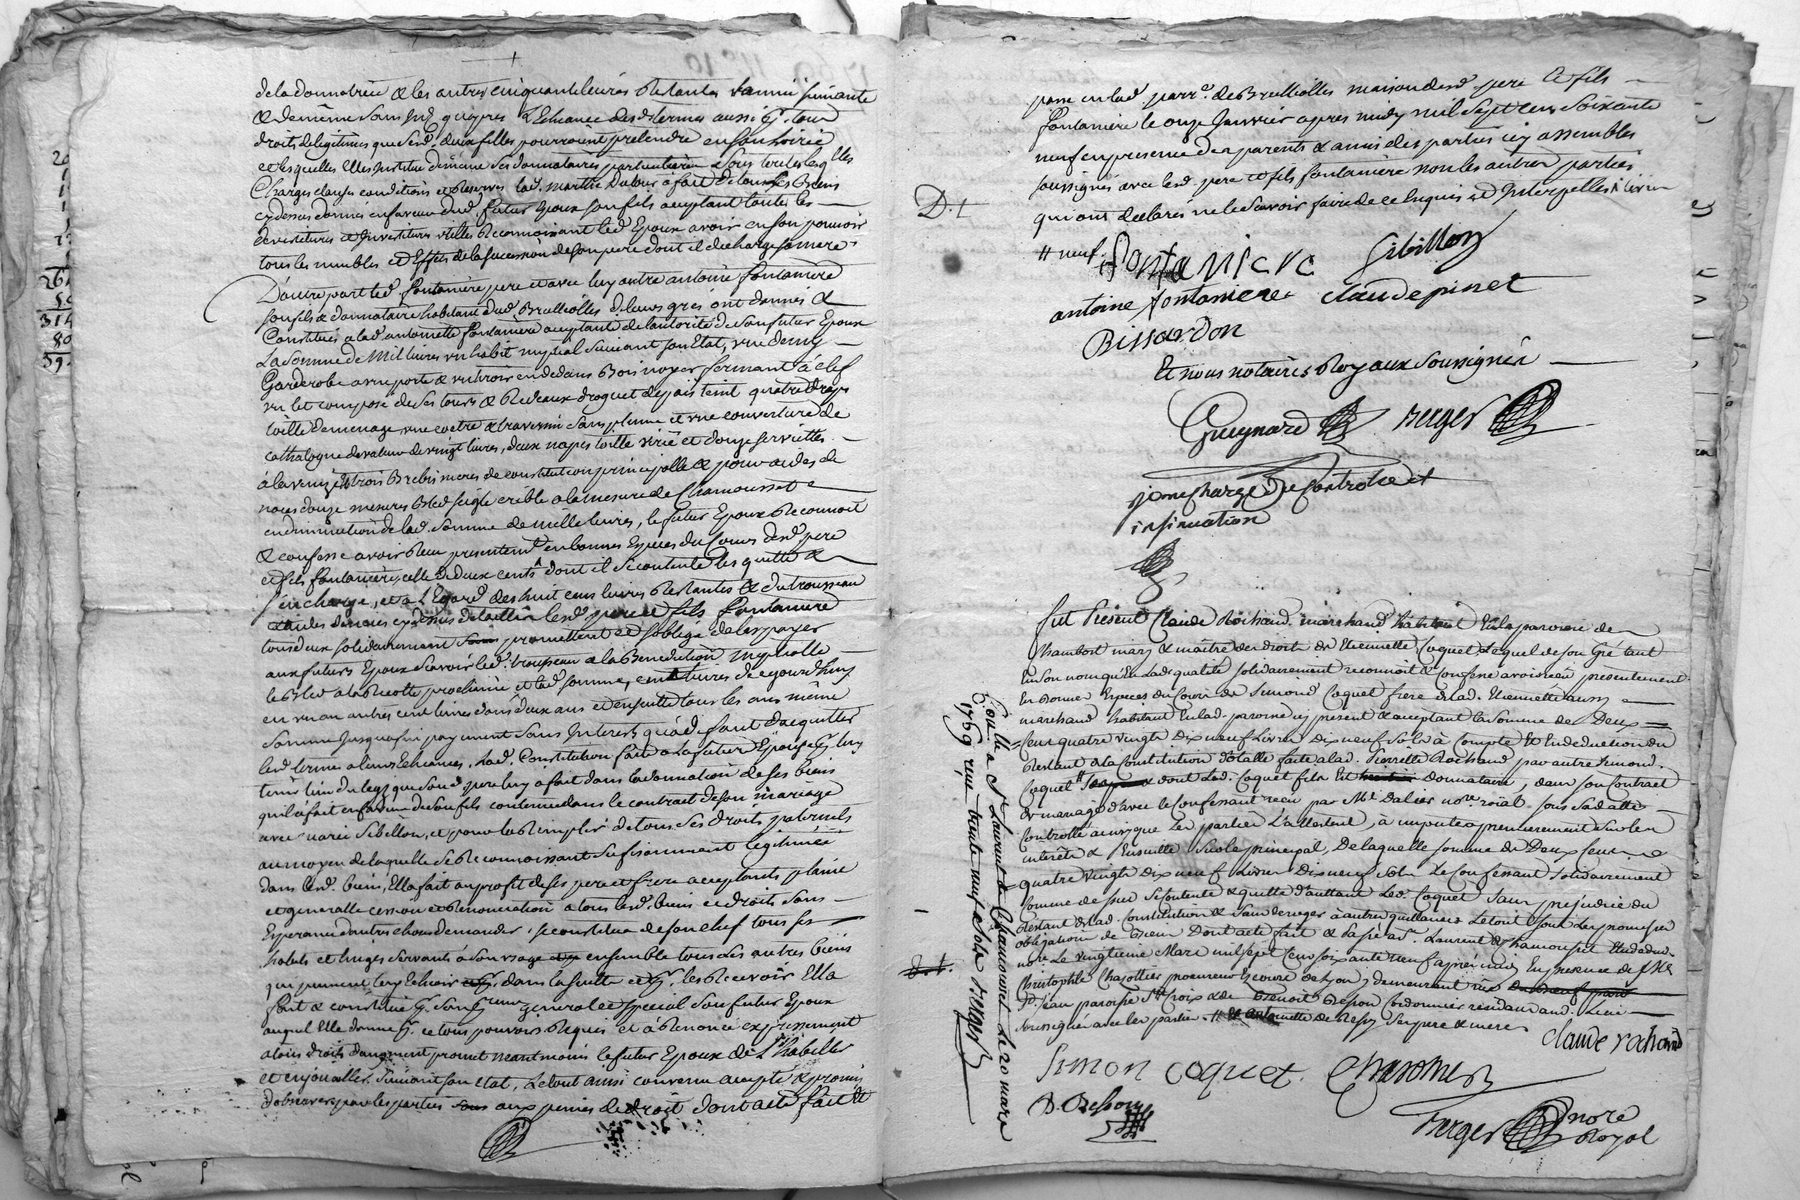 de la donnatrice & les autres cinquante livres restantes l'année suivante
& de même sans int. jusques l'echeance desd. termes aussi p. tous
droits de legitimes que lesd. deux filles pourroient pretendre en son hoirie
et lesquelles elle institue de même ses donnataires particulieres & sous toutes lesquelles
Charges clauses conditions et reserves lad. marthe Dubois a fait de tous ses Biens
cy dessus donnés en faveur dud. futur Epoux son fils acceptant toutes les
devestitures et Investitures utiles reconnoissant led. Epoux avoir en son pouvoir
tous les meubles et Effets de la succession de son pere dont il decharge sa mere
D'autre part led. fontanière pere et avec luy autre antoine fontanière
son fils & donnataire habitant dud. Brullioles de leurs gres ont donnés &
Constitués a lad. antoinette fontanière acceptante de l'autorité de son futur Epoux
La somme de Mil livres un habit nuptial suivant son Etat, une demy
Garderobe a une porte & un tiroir en dedans Bois noyer fermant à clef
un lit composé de ses tours & rideaux droguet de païs teint quatre draps
toille de menage, une coetre & traversin sans plume et une couverture de
cathalogne de valeur de vingt livres, deux napes toille virée et douze serviettes
à la venize & trois Brebis meres de constitution principalle & pour aides de
noces douze mesures Bled seigle crible a la mesure de Chamousset
en diminution de lad. somme de mille livres, le futur Epoux reconnoit
& confesse avoir reçu presentem.t en bonnes Especes du Cours desd. pere
et fils fontanière, celle de deux cents # dont il se contente les quitte &
Decharge, et a l'Egard des huit cens livres restantes & du trousseau
et aides de noces cy dessus detaillés lesd. pere et fils fontanière
tous deux solidairement promettent et s'oblige de les payer
aux futurs Epoux sçavoir led. trousseau a la Benediction nuptialle
le Bled a la recolte prochaine et lad. somme, cent livres de ce jourd'huy
en un an autres cent livres dans deux ans et ensuitte tous les ans même
somme jusqu'a fin payement sans Interest qu'a deffaut d'acquitter
lesd. termes a leurs Echeances. Lad. Constitution faite a la future Epouse p. luy
tenir lieu du legs que sond. pere luy a fait dans la donnation de ses biens
qu'il a fait en faveur de son fils contenue dans le contract de son mariage
avec marie sibellon, et pour la remplir de tous ses droits paternels
au moyen de laquelle se reconnoissant suffisamment legitimée
dans lesd. biens, Ella fait au profit de ses pere et frere acceptants plaine
et generalle cession et renonciation a tous lesd. biens et droits sans
Esperance d'autres choses demander, se constitue de son chef tous ses
habits et linges servants à son usage ensemble tous les autres biens
qui peuvent luy Echoir dans la suitte et p. les recevoir Ella
fait & constitue p. son procureur general et special son futur Epoux
auquel Elle donne p. ce tous pouvoirs Requis et a Renoncé expressement
a tous droits d'augment promet neantmoins le futur Epoux de l'habiller
et enjoualler suivant son Etat, Le tout ainsi convenu accepté & promis
d'observer par les parties aux peines de droit dont acte fait &
passé en lad. parr.e de Brullioles maison desd. pere & fils
fontanière le onze Janvier apres midy mil sept cens soixante
neuf en presence des parents & amis des parties icy assemblés
soussignés avec lesd. pere et fils fontanière non les autres parties
qui ont declarés ne le sçavoir faire de ce Enquis et Interpellés
D. 1
# neuf
fontaniere Sibillon
antoine fontaniere claude pinet
Bissardon
Et nous notaires Royaux soussignés
Gueynard Berger
je me charge du Controlle et
insinuation
fut Présent Claude Rochand marchand habitant En la paroisse de
Chambost mary & maître des droits de Etiennette Coquet Lequel de son Gré tant
En son nom qu'En lad. qualité solidairement reconnoit & Confesse avoir reçu présentement
En Bonnes Especes du Cours de Simond Coquet frere de lad. Etiennette aussi
marchand habitant En lad. paroisse cy present & acceptant La somme de Deux
Cent quatre vingt Dix neuf Livres Dix neuf sols à Compte Et En deduction du
Restant de la Constitution Totalle faite a lad. Pierrette Rochand par autre Simond
Coquet # & dont Led. Coquet fils Est donnataire, dans son Contract
de mariage d'avec le Confessant reçu par M.e Dalier no.re roïal sous sa datte
Controllé ainsy que Les parties L'attestent, à imputer premierement sur les
interêts & Ensuitte sur le principal, De laquelle somme de Deux Cent
quatre vingt Dix neuf Livres Dix neuf sols Le Confessant solidairement
comme dessus se contente & quitte d'auttant Led. Coquet sans prejudice du
Restant de lad. Constitution & sans deroger à autres quittances Le tout sous Les promesses
obligations de Biens Dont acte fait & passé à S.t Laurent de Chamousset Etude dud.
no.re Le vingtieme Mars mil sept Cent soixante neuf après midy En presence de M.e
Christophle Chazottier procureur Es cours de Lyon y demeurant rue
S.t Jean paroisse S.te Croix & de Benoit Besson Cordonnier residant aud. Lieu
soussignés avec les parties # & antoinette de Ressy ses pere & mere
claude rochand
Simon coquet Chazottier
B. Besson
Berger no.re Royal
Con.llé a S.t Laurent de Chamousset le 20 mars
1769 reçu trente neuf sols Berger